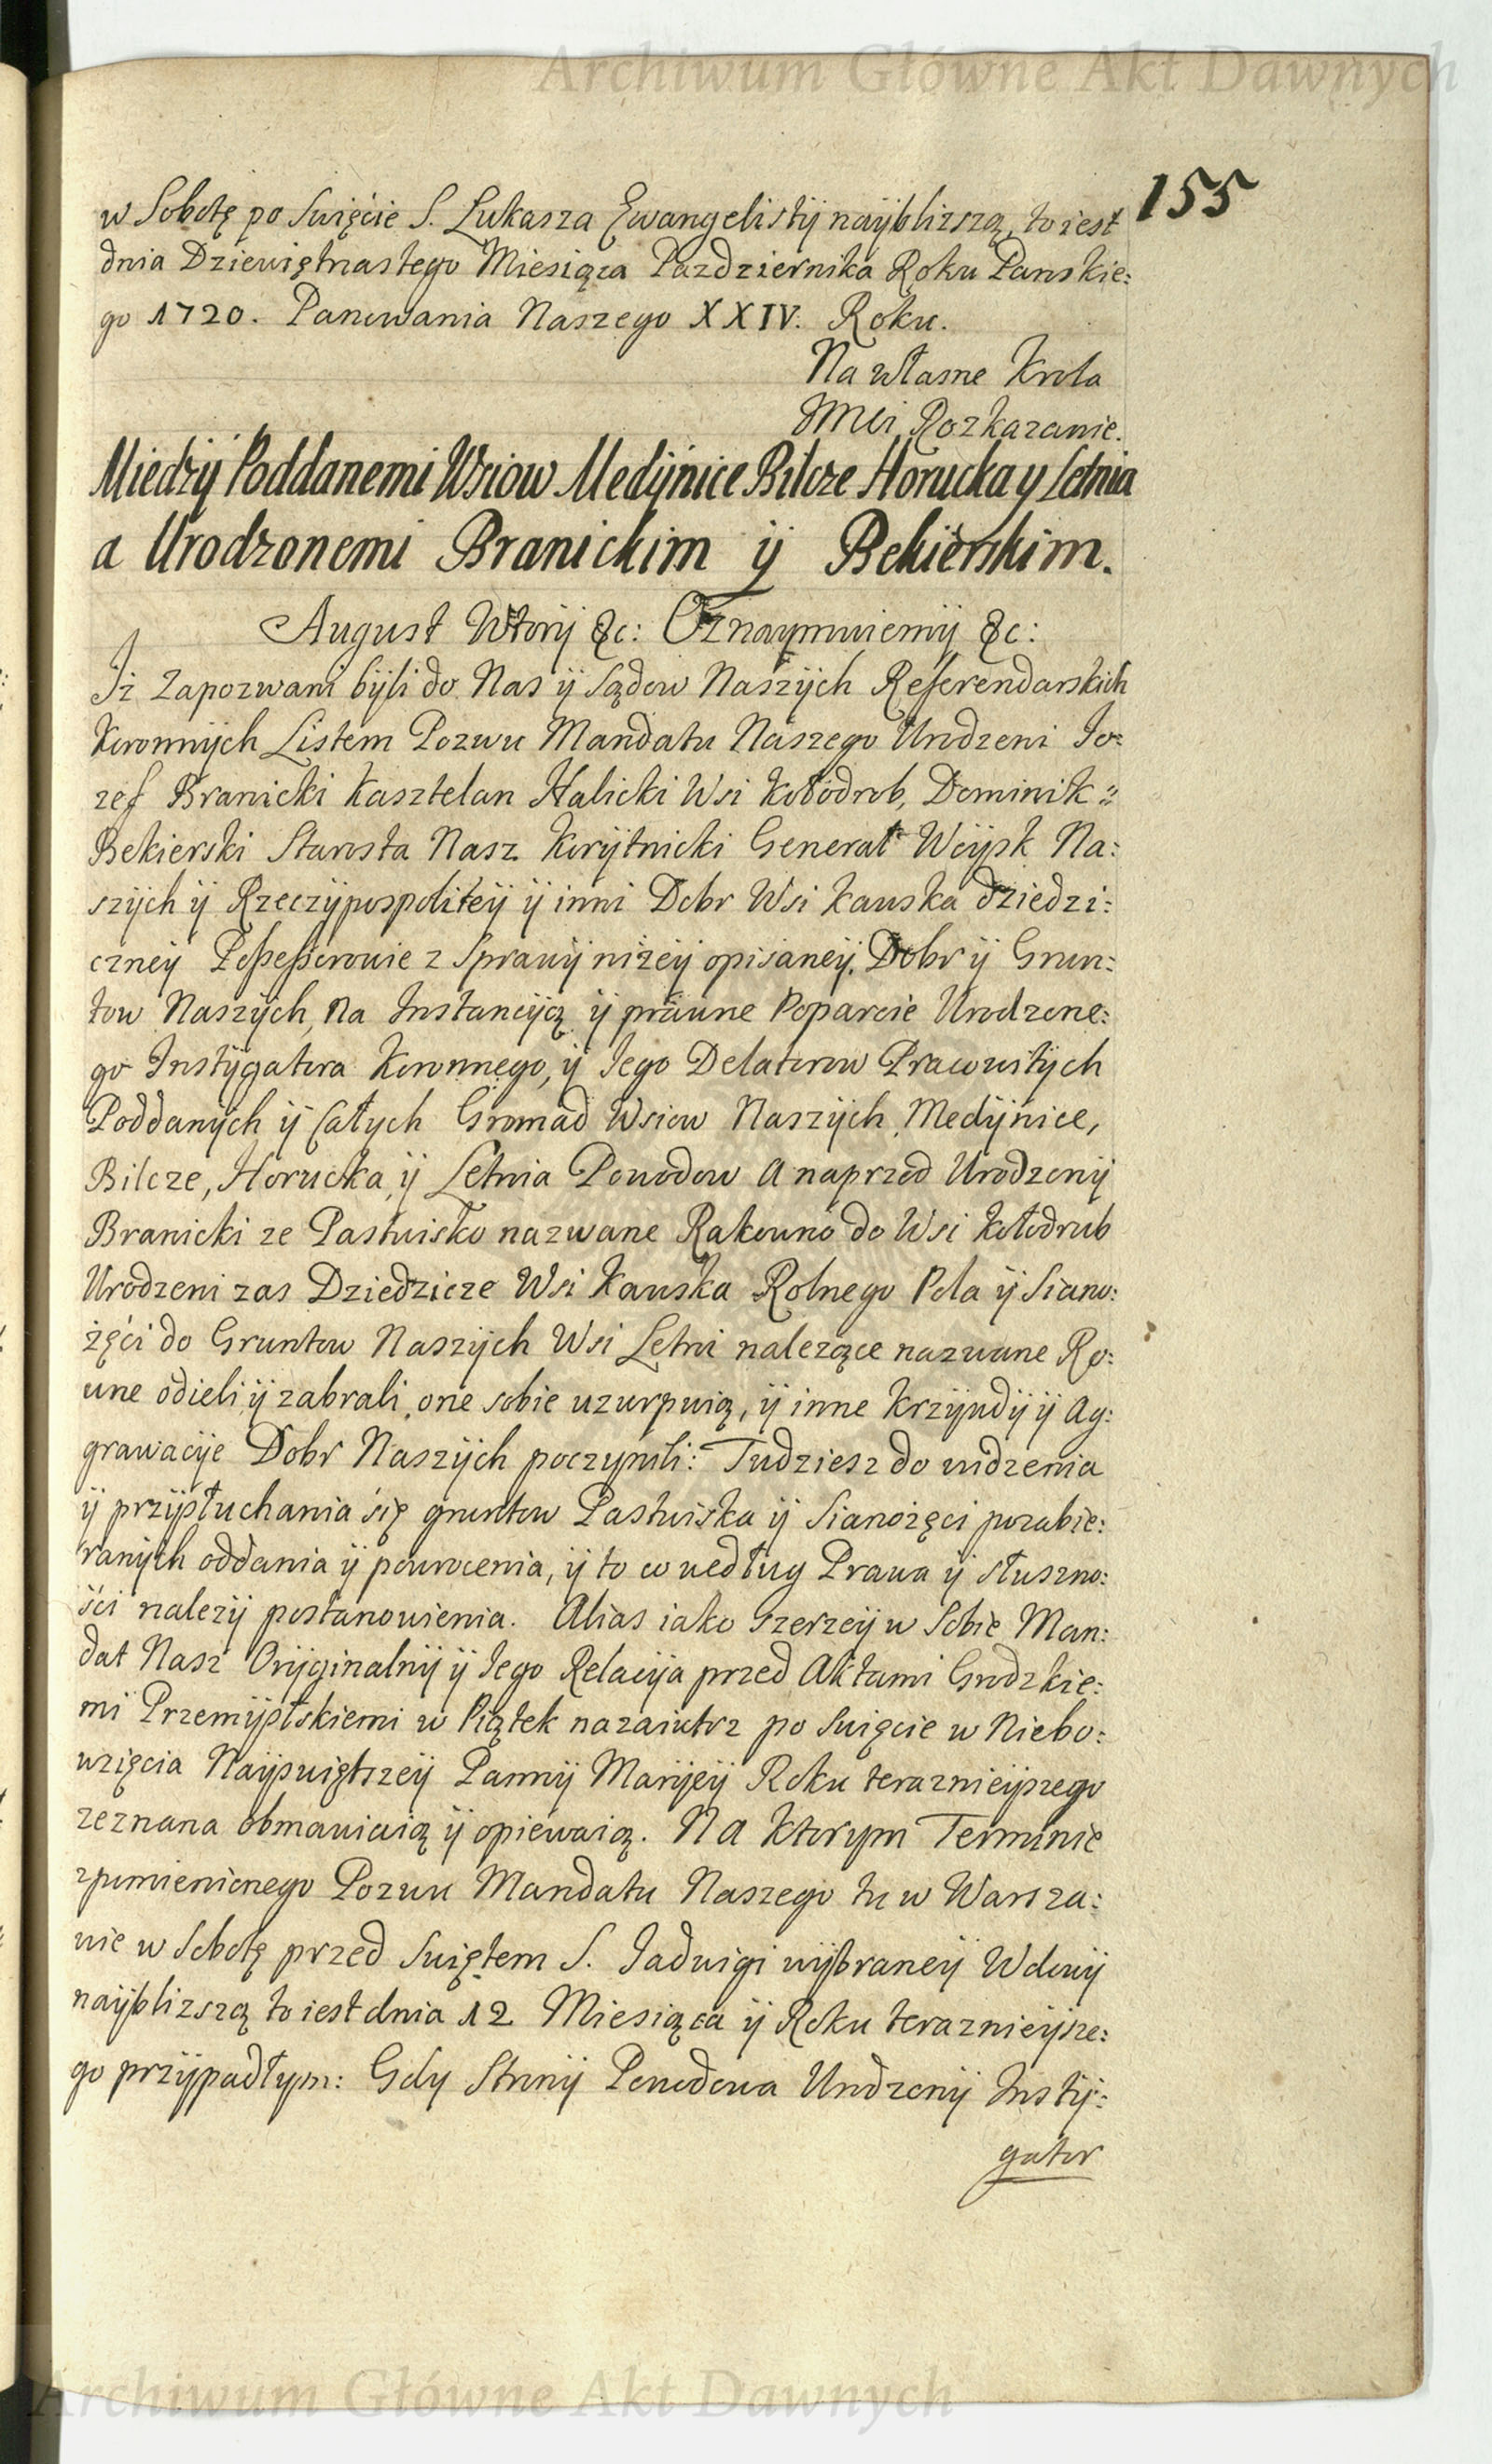 Archiwum Główne Akt Dawnych
155
w Sobotę po Swięcie S. Łukasza Ewangelisty naybliższą, to iest
dnia Dziewiętnastego Miesiąca Pazdziernika Roku Panskie:
go 1720. Panowania Naszego XXIV. Roku.
Na własne Krola
JMci Rozkazanie.
Miedzÿ Poddanemi Wsiow Medÿnice Bilcze Horucka y Letnia
a Urodzonemi Branickim ÿ Bekierskim.
August Wtorÿ &c: Oznaymuiemÿ &c:
Iż Zapozwani bÿli do Nas ÿ Sądow Naszÿch Referendarskich
Koronnÿch Listem Pozwu Mandatu Naszego Urodzeni Jo:
zef Branicki Kasztelan Halicki Wsi Kołodrob, Dominik
Bekierski Starosta Nasz Korÿtnicki Generał Woÿsk Na:
szÿch ÿ Rzeczÿpospoliteÿ ÿ inni Dobr Wsi Kawska dziedzi:
czneÿ Possessorowie z Sprawÿ niżeÿ opisaneÿ, Dobr ÿ Grun:
tow Naszÿch, na Instancÿą ÿ prawne Poparcie Urodzone:
go Instÿgatora Koronnego, ÿ Jego Delatorow Pracowitÿch
Poddanÿch ÿ całych Gromad Wsiow Naszÿch Medÿnice,
Bilcze, Horucka, ÿ Letnia Powodow a naprzod Urodzonÿ
Branicki ze Pastwisko nazwane Rakowno do Wsi Kołodrub
Urodzeni zas Dziedzicze Wsi Kawska Rolnego Pola ÿ Siano:
żęci do Gruntow Naszÿch Wsi Letni nalezące nazwane Ro:
wne odieli ÿ zabrali, one sobie uzurpuią, ÿ inne Krzÿwdÿ ÿ Ag:
grawacÿe Dobr Naszÿch poczynili: Tudziesz do widzenia
ÿ przÿsłuchania się gruntow Pastwiska ÿ Sianożęci pozabie:
ranÿch oddania ÿ powrocenia, ÿ to co według Prawa ÿ słuszno:
ści nalezÿ postanowienia. Alias iako szerzeÿ w Sobie Man:
dat Nasz Orÿginalnÿ ÿ Jego Relacÿa przed Aktami Grodzkie:
mi Przemÿslskiemi w Piątek nazaiutrz po Swięcie w Niebo:
wzięcia Naÿswiętszeÿ Pannÿ Marÿeÿ Roku teraznieÿszego
zeznana obmawiaią ÿ opiewaią. Na Ktorym Terminie
zpomienionego Pozwu Mandatu Naszego tu w Warsza:
wie w Sobotę przed Swiętem S. Jadwigi wÿbraneÿ Wdowÿ
naÿblizszą to iest dnia 12 Miesiąca ÿ Roku teraznieÿsze:
go przÿpadłym: Gdy Stronÿ Powodowa Urodzonÿ Instÿ:
gator
Archiwum Główne Akt Dawnych